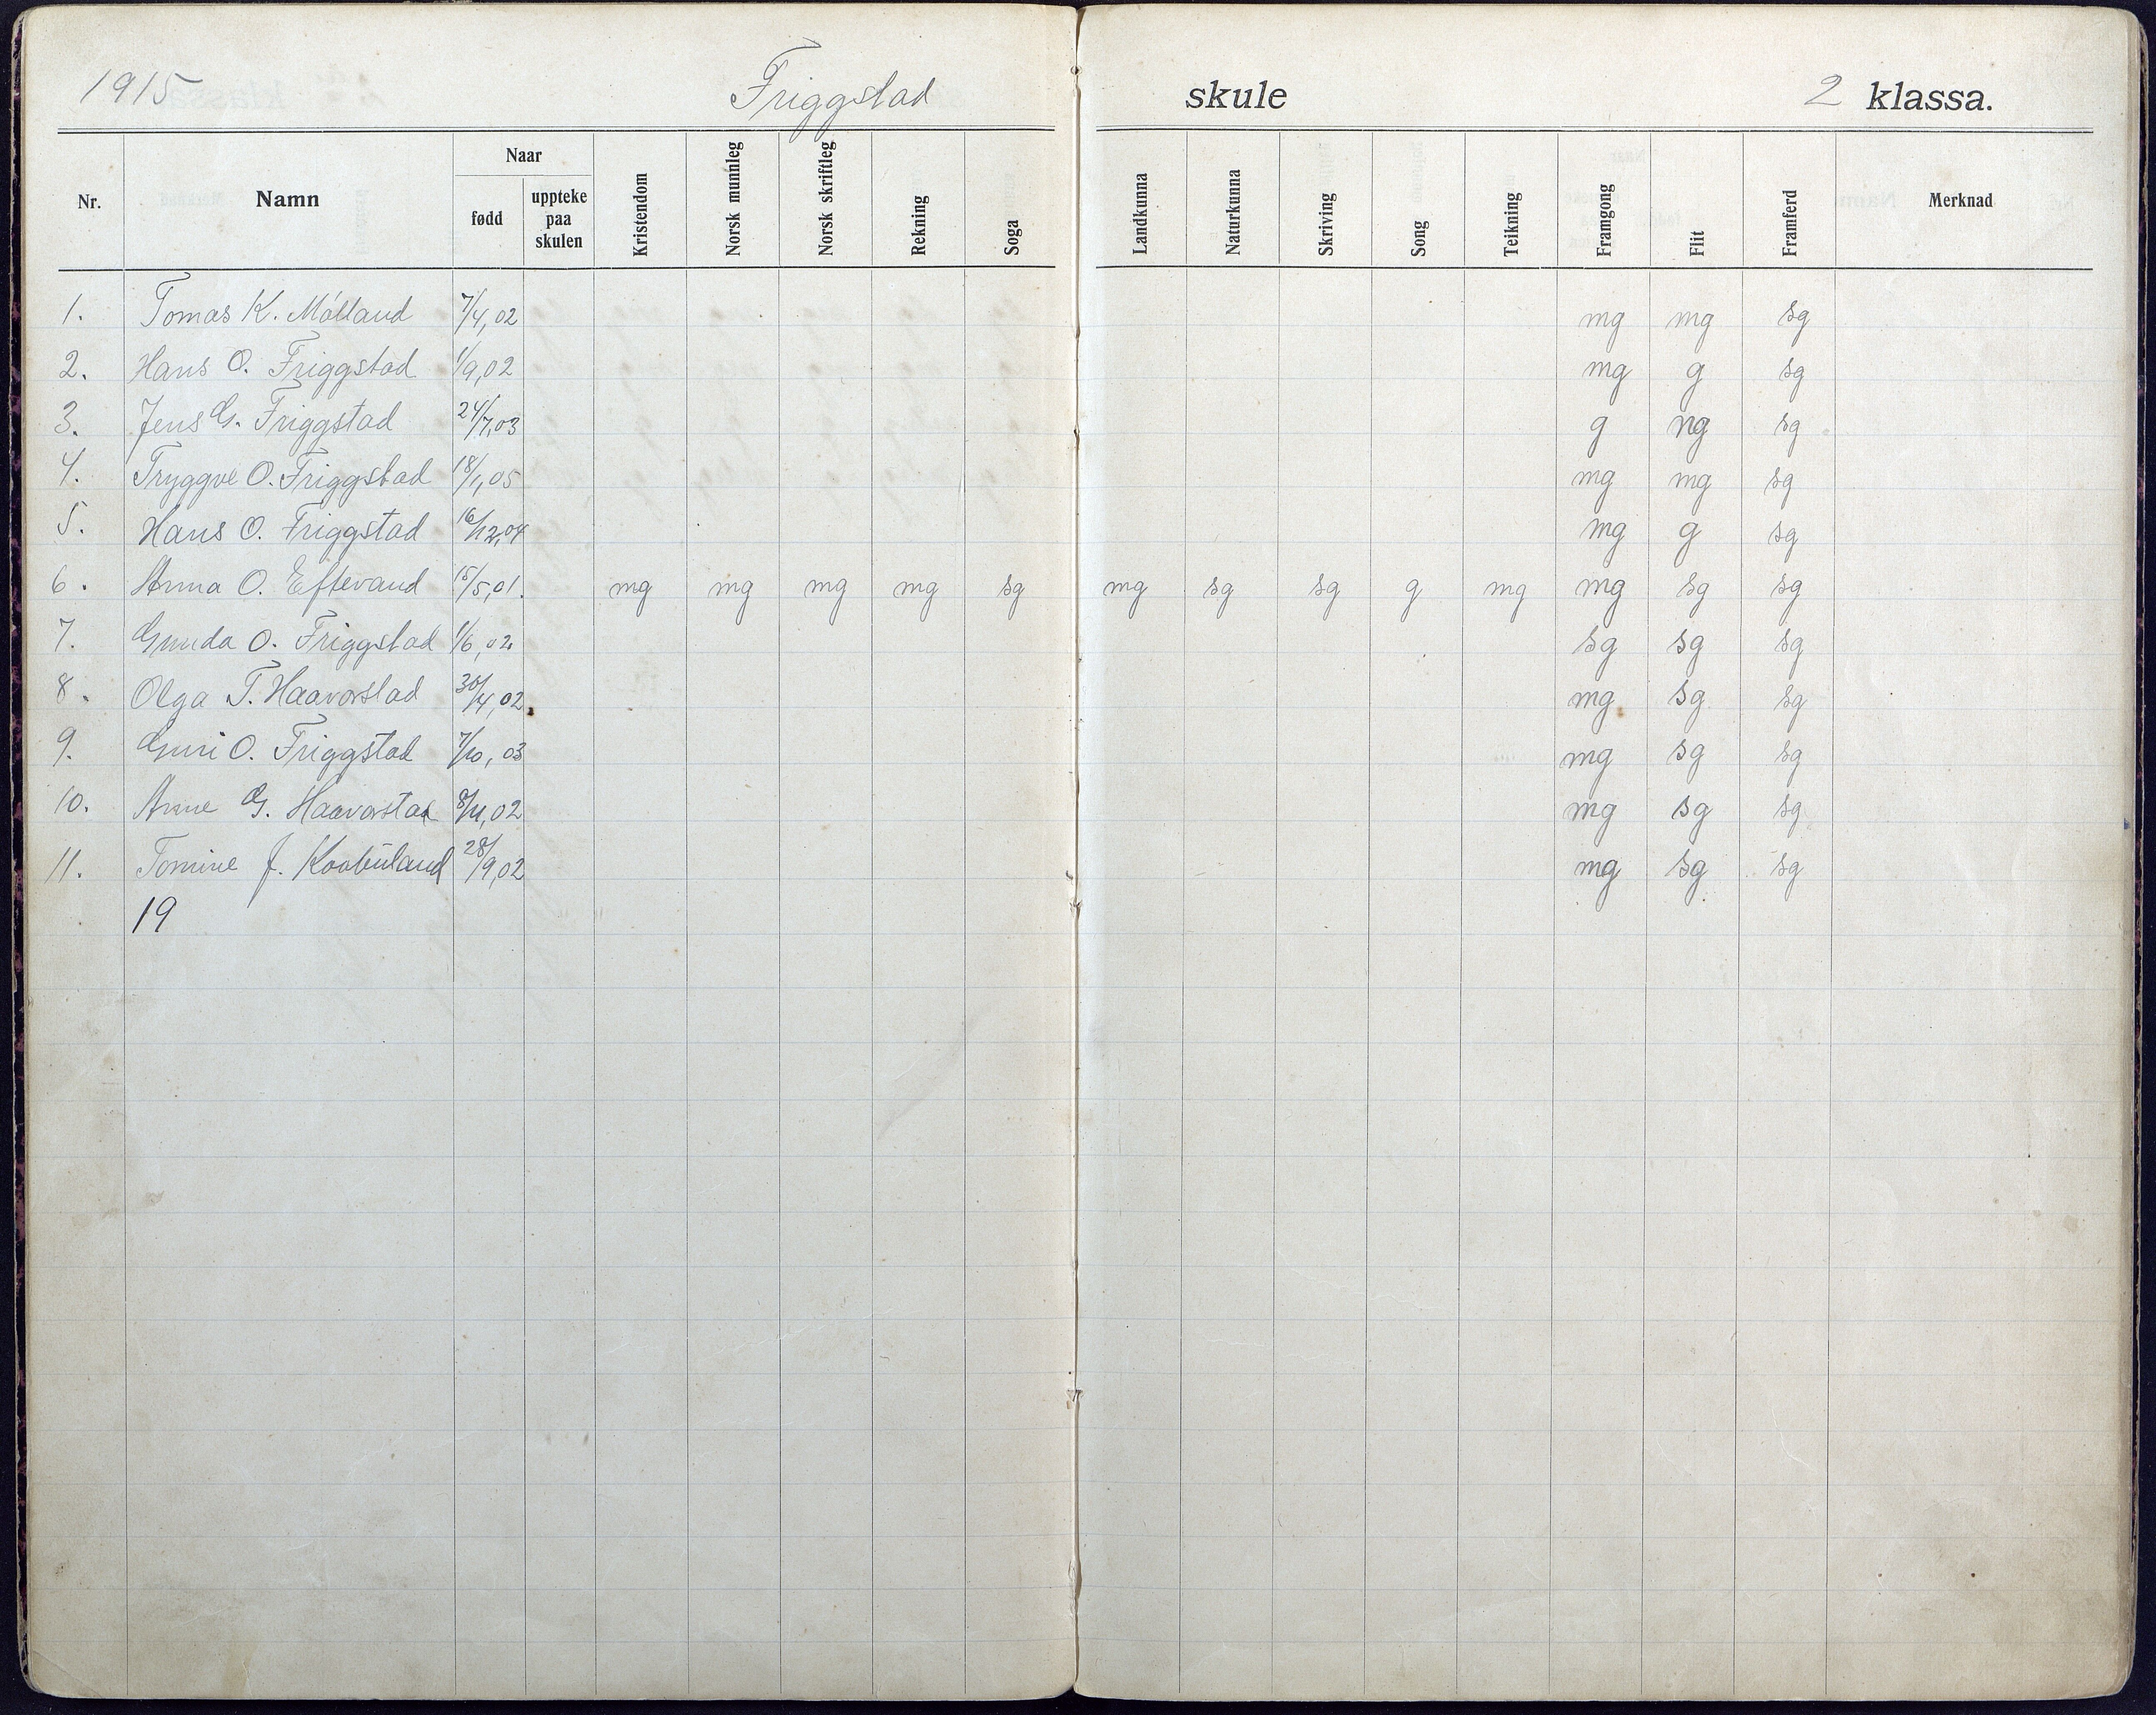 1915 Friggstad skule 2 klassa.
Nr. Namn Naar fødd uppteke paa skulen Kristendom Norsk munnleg Norsk skriftleg Rekning Soga Landkunna Naturkunna Skriving Song Teikning Framgong Flit Framferd Merknad
1. Tomas K. Mölland 7/4,02 mg mg sg
2. Hans O. Friggstad 1/9,02 mg g sg
3. Jens G. Friggstad 24/7,03 g ng sg
4. Tryggve O. Friggstad 18/1,05 mg mg sg
5. Hans O. Friggstad 16/12,04 mg g sg
6. Anna O. Eftevand 15/5,01. mg mg mg mg sg mg sg sg g mg mg sg sg
7. Gunda O. Friggstad 1/6,02 sg sg sg
8. Olga T. Haavorstad 30/4,02 mg sg sg
9. Guri O. Friggstad 7/10,03 mg sg sg
10. Anne G. Haavorstad 8/11,02 mg sg sg
11. Tomine J. 28/9,02 mg sg sg
19